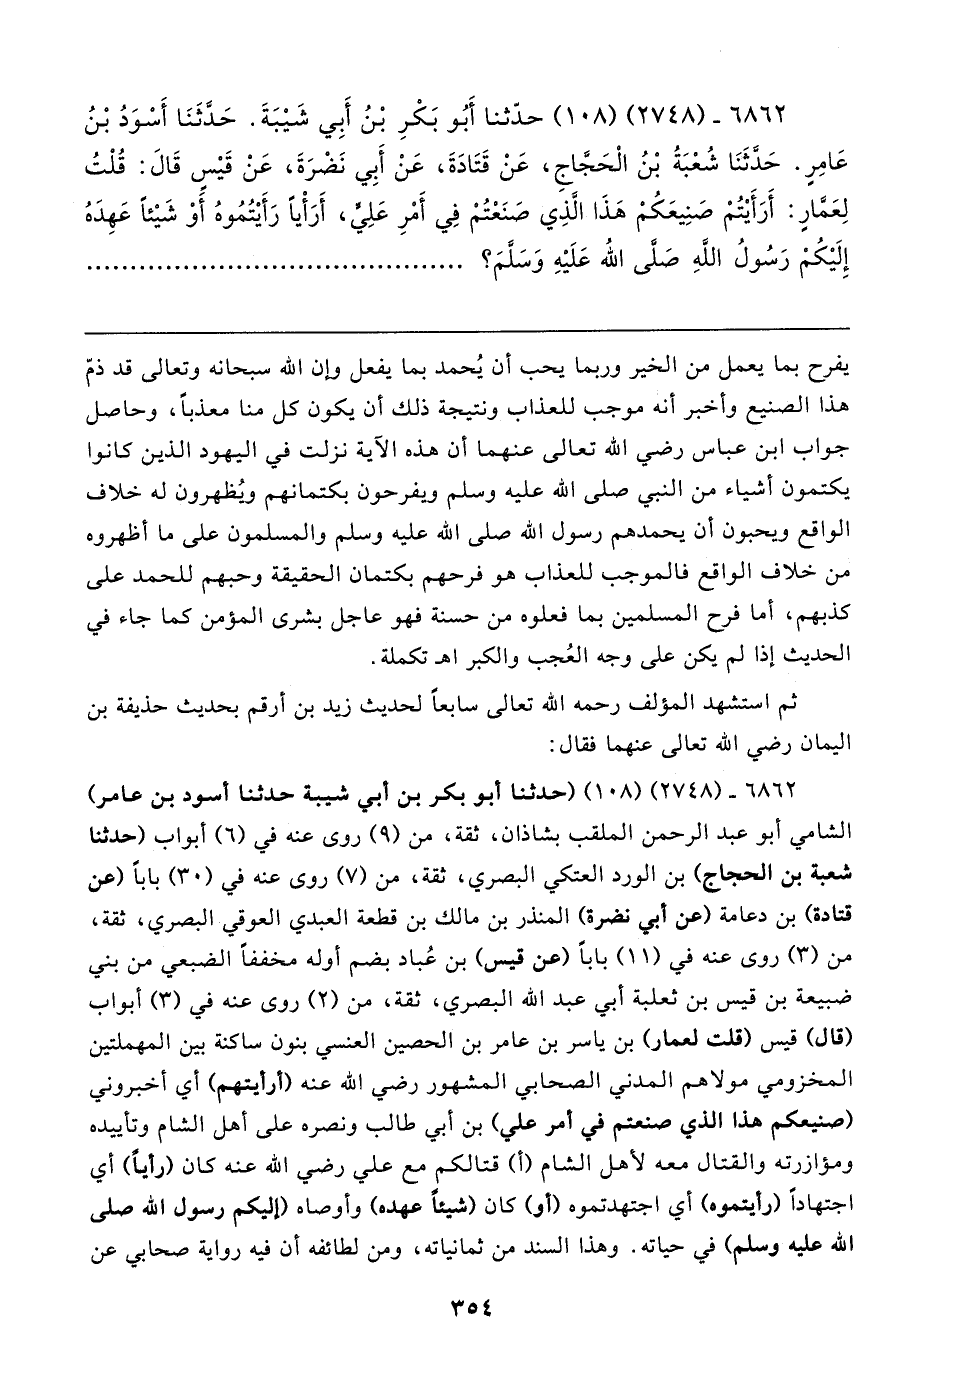 ٦٨٦٢ ـ (٢٧٤٨) (١٠٨) حدّثنا أَبُو بَكْرِ بْنُ أَبِي شَيْبَةَ. حَدَّثَنَا أَسْوَدُ بْنُ
عَامِرٍ. حَدَّثَنَا شُعْبَةُ بْنُ الْحَجَّاجِ، عَنْ قَتَادَةَ، عَنْ أَبِي نَضْرَةَ، عَنْ قَيْسٍ قَالَ: قُلْتُ
لِعَمَّارٍ: أَرَأَيْتُمْ صَنِيعَكُمْ هَذَا الَّذِي صَنَعْتُمْ فِي أَمْرِ عَلِيٍّ، أَرَأْياً رَأَيْتُمُوهُ أَوْ شَيْئاً عَهِدَهُ
إِلَيْكُمْ رَسُولُ اللَّهِ صَلَّى اللهُ عَلَيْهِ وَسَلَّمَ؟ ............................................
يفرح بما يعمل من الخير وربما يحب أن يُحمد بما يفعل وإن الله سبحانه وتعالى قد ذمّ
هذا الصنيع وأخبر أنه موجب للعذاب ونتيجة ذلك أن يكون كل منا معذباً، وحاصل
جواب ابن عباس رضي الله تعالى عنهما أن هذه الآية نزلت في اليهود الذين كانوا
يكتمون أشياء من النبي صلى الله عليه وسلم ويفرحون بكتمانهم ويُظهرون له خلاف
الواقع ويحبون أن يحمدهم رسول الله صلى الله عليه وسلم والمسلمون على ما أظهروه
من خلاف الواقع فالموجب للعذاب هو فرحهم بكتمان الحقيقة وحبهم للحمد على
كذبهم، أما فرح المسلمين بما فعلوه من حسنة فهو عاجل بشرى المؤمن كما جاء في
الحديث إذا لم يكن على وجه العُجب والكبر اهـ تكملة.
ثم استشهد المؤلف رحمه الله تعالى سابعاً لحديث زيد بن أرقم بحديث حذيفة بن
اليمان رضي الله تعالى عنهما فقال:
٦٨٦٢ ـ (٢٧٤٨) (١٠٨) (حدثنا أبو بكر بن أبي شيبة حدثنا أسود بن عامر)
الشامي أبو عبد الرحمن الملقب بشاذان، ثقة، من (٩) روى عنه في (٦) أبواب (حدثنا
شعبة بن الحجاج) بن الورد العتكي البصري، ثقة، من (٧) روى عنه في (٣٠) باباً (عن
قتادة) بن دعامة (عن أبي نضرة) المنذر بن مالك بن قطعة العبدي العوقي البصري، ثقة،
من (٣) روى عنه في (١١) باباً (عن قيس) بن عُباد بضم أوله مخففاً الضبعي من بني
ضبيعة بن قيس بن ثعلبة أبي عبد الله البصري، ثقة، من (٢) روى عنه في (٣) أبواب
(قال) قيس (قلت لعمار) بن ياسر بن عامر بن الحصين العنسي بنون ساكنة بين المهملتين
المخزومي مولاهم المدني الصحابي المشهور رضي الله عنه (أرأيتهم) أي أخبروني
(صنيعكم هذا الذي صنعتم في أمر علي) بن أبي طالب ونصره على أهل الشام وتأييده
ومؤازرته والقتال معه لأهل الشام (أ) قتالكم مع علي رضي الله عنه كان (رأياً) أي
اجتهاداً (رأيتموه) أي اجتهدتموه (أو) كان (شيئاً عهده) وأوصاه (إليكم رسول الله صلى
الله عليه وسلم) في حياته. وهذا السند من ثمانياته، ومن لطائفه أن فيه رواية صحابي عن
٣٥٤